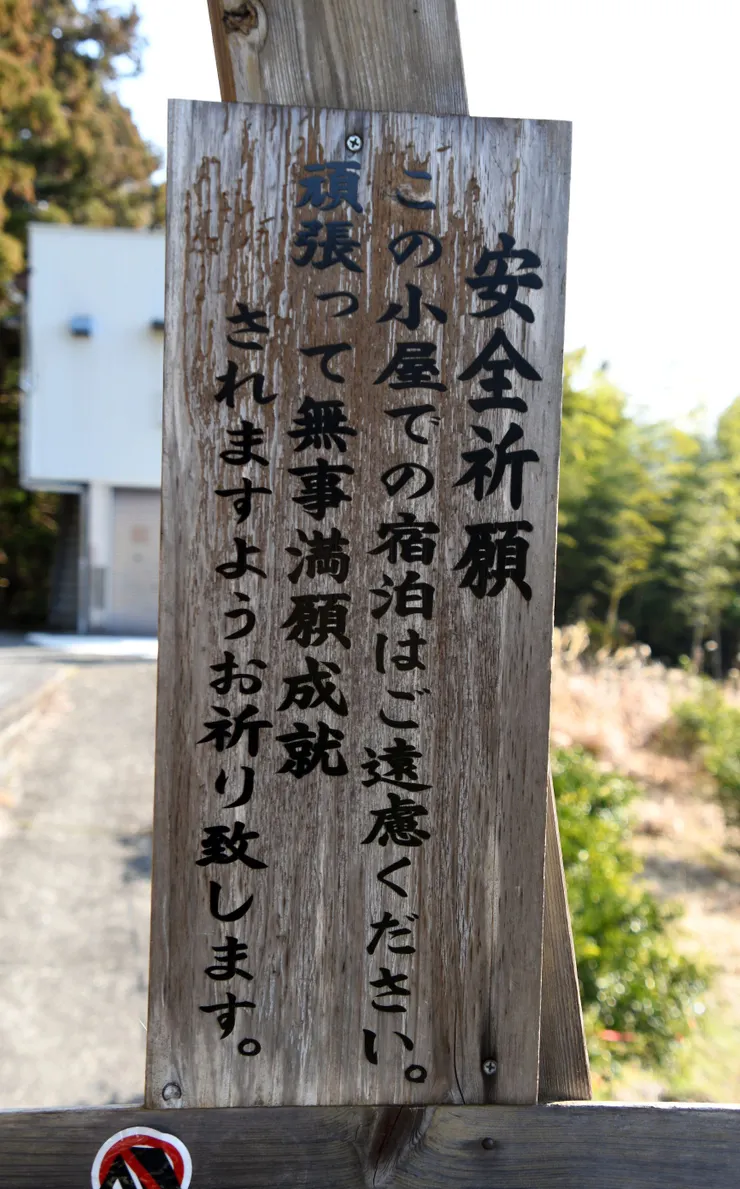 安全祈願
この小屋での宿泊はご遠慮ください。
頑張って無事満願成就
されますようお祈り致します。